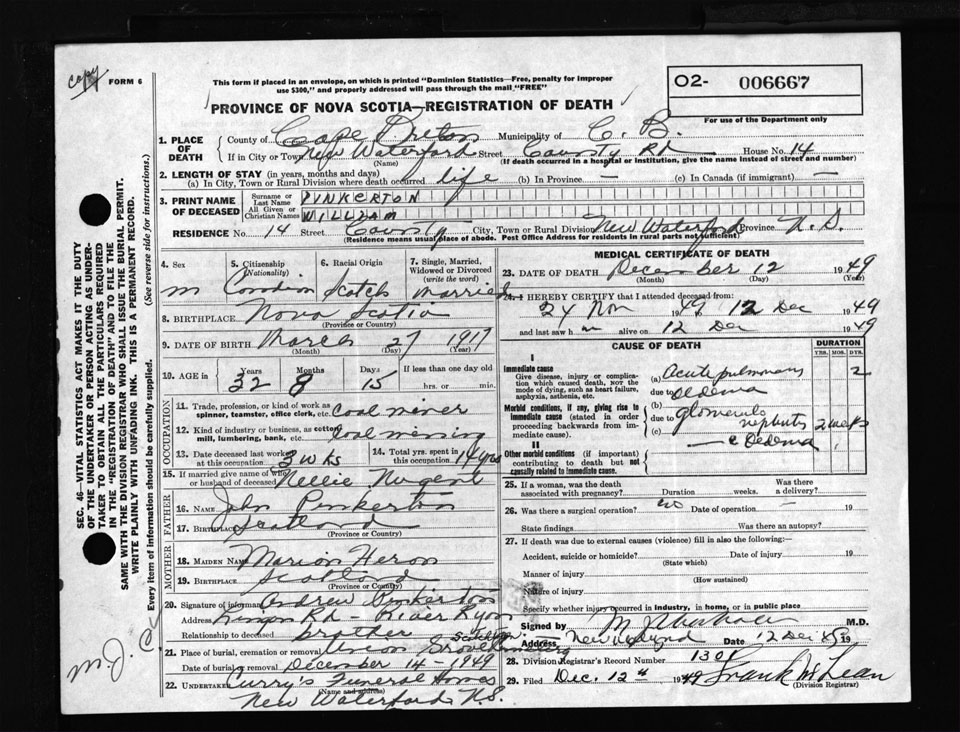 copy
FORM 6
This form if placed in an envelope, on which is printed "Dominion Statistics—Free, penalty for improper
use $300," and properly addressed will pass through the mail "FREE"
PROVINCE OF NOVA SCOTIA—REGISTRATION OF DEATH
O2- 006667
For use of the Department only
SEC. 46—VITAL STATISTICS ACT MAKES IT THE DUTY
OF THE UNDERTAKER OR PERSON ACTING AS UNDER-
TAKER TO OBTAIN ALL THE PARTICULARS REQUIRED
IN THE "REGISTRATION OF DEATH" AND TO FILE THE
SAME WITH THE DIVISION REGISTRAR WHO SHALL ISSUE THE BURIAL PERMIT.
WRITE PLAINLY WITH UNFADING INK. THIS IS A PERMANENT RECORD.
Every item of information should be carefully supplied. (See reverse side for instructions.)
1. PLACE OF DEATH
County of Cape Breton Municipality of C. B.
If in City or Town New Waterford Street County Rd House No. 14
(Name) (If death occurred in a hospital or institution, give the name instead of street and number)
2. LENGTH OF STAY (in years, months and days)
(a) In City, Town or Rural Division where death occurred life (b) In Province — (c) In Canada (if immigrant) —
3. PRINT NAME OF DECEASED
Surname or Last Name PINKERTON
All Given or Christian Names WILLIAM
RESIDENCE No. 14 Street County City, Town or Rural Division New Waterford Province N.S.
(Residence means usual place of abode. Post Office Address for residents in rural parts not sufficient)
4. Sex 5. Citizenship (Nationality) 6. Racial Origin 7. Single, Married, Widowed or Divorced (write the word)
m Canadian Scotch married
8. BIRTHPLACE Nova Scotia
(Province or Country)
9. DATE OF BIRTH March 27 1917
(Month) (Day) (Year)
10. AGE in Years Months Days If less than one day old
32 8 15 hrs. or min.
OCCUPATION
11. Trade, profession, or kind of work as spinner, teamster, office clerk, etc. Coal miner
12. Kind of industry or business, as cotton mill, lumbering, bank, etc. Coal mining
13. Date deceased last worked at this occupation 3 wks 14. Total yrs. spent in this occupation 14 yrs
15. If married give name of wife or husband of deceased Nellie Nugent
FATHER
16. Name John Pinkerton
17. Birthplace Scotland
(Province or Country)
MOTHER
18. Maiden Name Marion Heron
19. Birthplace Scotland
(Province or Country)
20. Signature of informant Andrew Pinkerton
Address Rd - River Ryan
Relationship to deceased brother
21. Place of burial, cremation or removal Union Grove
Date of burial or removal December 14 - 1949
22. Undertaker Curry's Funeral Homes
(Name and address)
New Waterford N.S.
MEDICAL CERTIFICATE OF DEATH
23. DATE OF DEATH December 12 1949
(Month) (Day) (Year)
24. I HEREBY CERTIFY that I attended deceased from:
24 Nov 1949 12 Dec 1949
and last saw h m alive on 12 Dec 1949
CAUSE OF DEATH DURATION
YRS. MOS. DYS.
I
Immediate cause
Give disease, injury or complication which caused death, not the mode of dying, such as heart failure, asphyxia, asthenia, etc.
(a) Acute pulmonary 2
due to Oedema
Morbid conditions, if any, giving rise to immediate cause (stated in order proceeding backwards from immediate cause).
(b)
due to glomerulo
(c) nephritis 2 weeks
c Oedema
II
Other morbid conditions (if important) contributing to death but not causally related to immediate cause.
25. If a woman, was the death associated with pregnancy? Duration weeks. Was there a delivery?
26. Was there a surgical operation? no Date of operation — 19
State findings Was there an autopsy?
27. If death was due to external causes (violence) fill in also the following:
Accident, suicide or homicide? Date of injury 19
(State which)
Manner of injury
(How sustained)
Nature of injury
Specify whether injury occurred in industry, in home, or in public place
Signed by M.D.
Address Date 12 Dec 19
28. Division Registrar's Record Number 1301
29. Filed Dec. 12th 1949 Frank McLean
(Division Registrar)